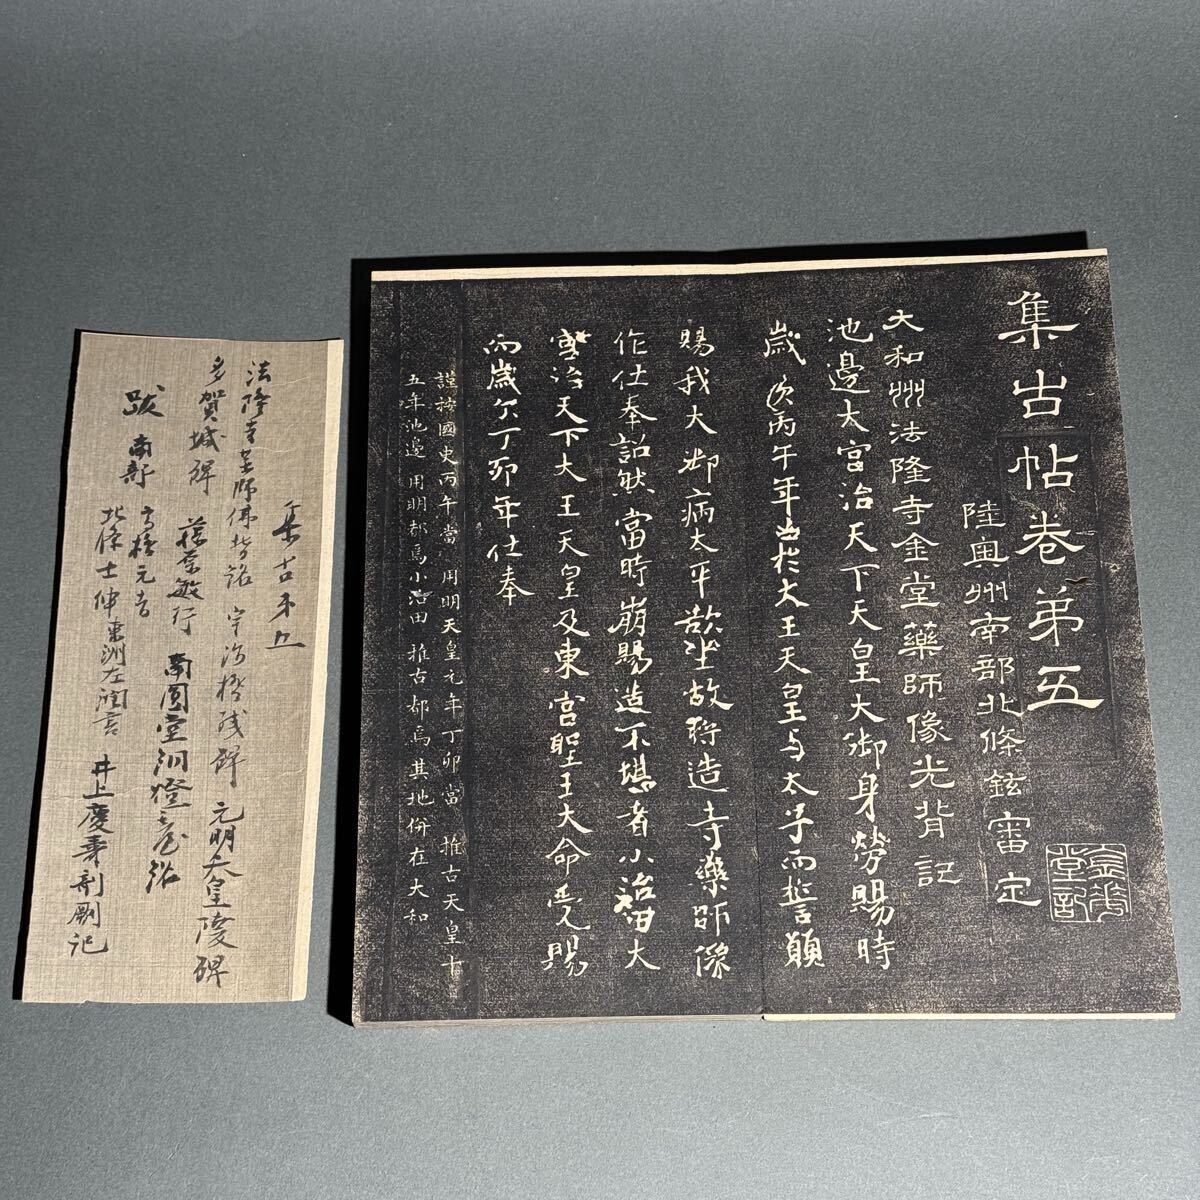 集古帖卷第五
陸奥州南部北條鉉審定
大和州法隆寺金堂藥師像光背記
池邊大宮治天下天皇大御身勞賜時
歳次丙午年召於大王天皇与太子而誓願
賜我大御病太平欲坐故将造寺藥師像
作仕奉詔然當時崩賜造不堪者小治田大
宮治天下大王天皇及東宮聖王大命受賜
而歳次丁卯年仕奉
謹按國史丙午當用明天皇元年丁卯當推古天皇十
五年池邊用明都為小治田推古都為其地併在大和
集古帖五
法隆寺薬師佛背銘 宇治橋残碑 元明天皇陵碑
多賀城碑 藤原敏行 南圓堂洞燈臺銘
跋 南部 高橋元吉
北條士伸 東洲左潤言 井上慶壽刻劂記